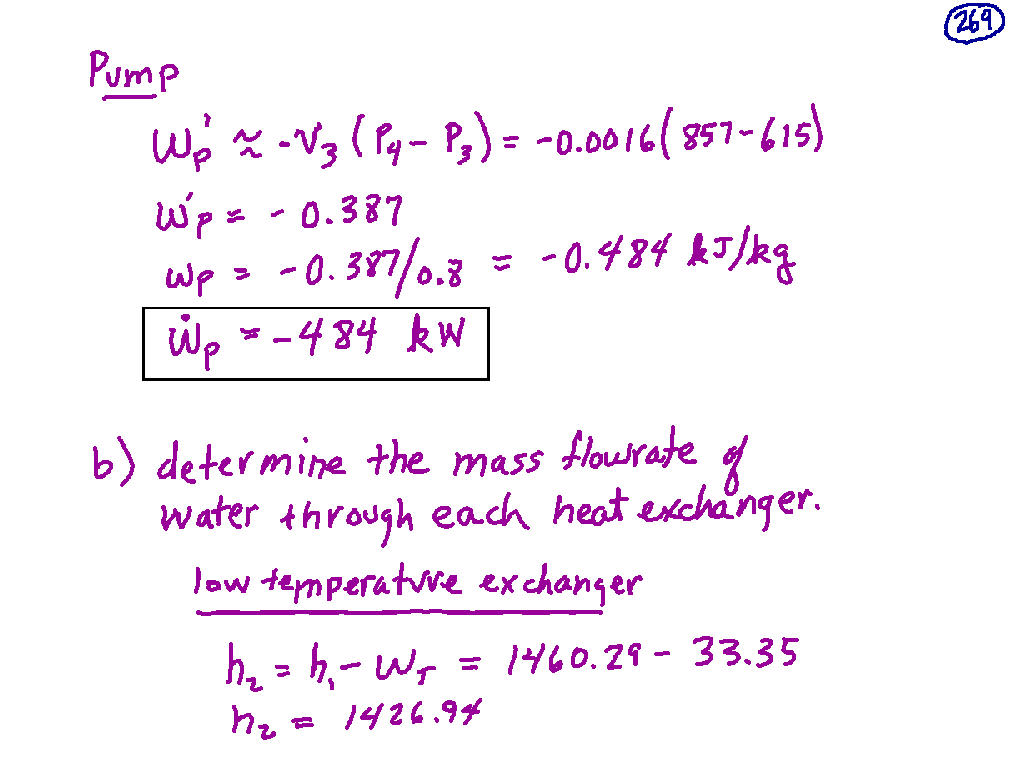 269
Pump
Wp' ≈ -V₃ (P₄ - P₃) = -0.0016(857-615)
W'p = -0.387
wp = -0.387/0.8 = -0.484 kJ/kg
Ẇp = -484 kW
b) determine the mass flowrate of
water through each heat exchanger.
low temperature exchanger
h₂ = h₁ - W_T = 1460.29 - 33.35
h₂ = 1426.94